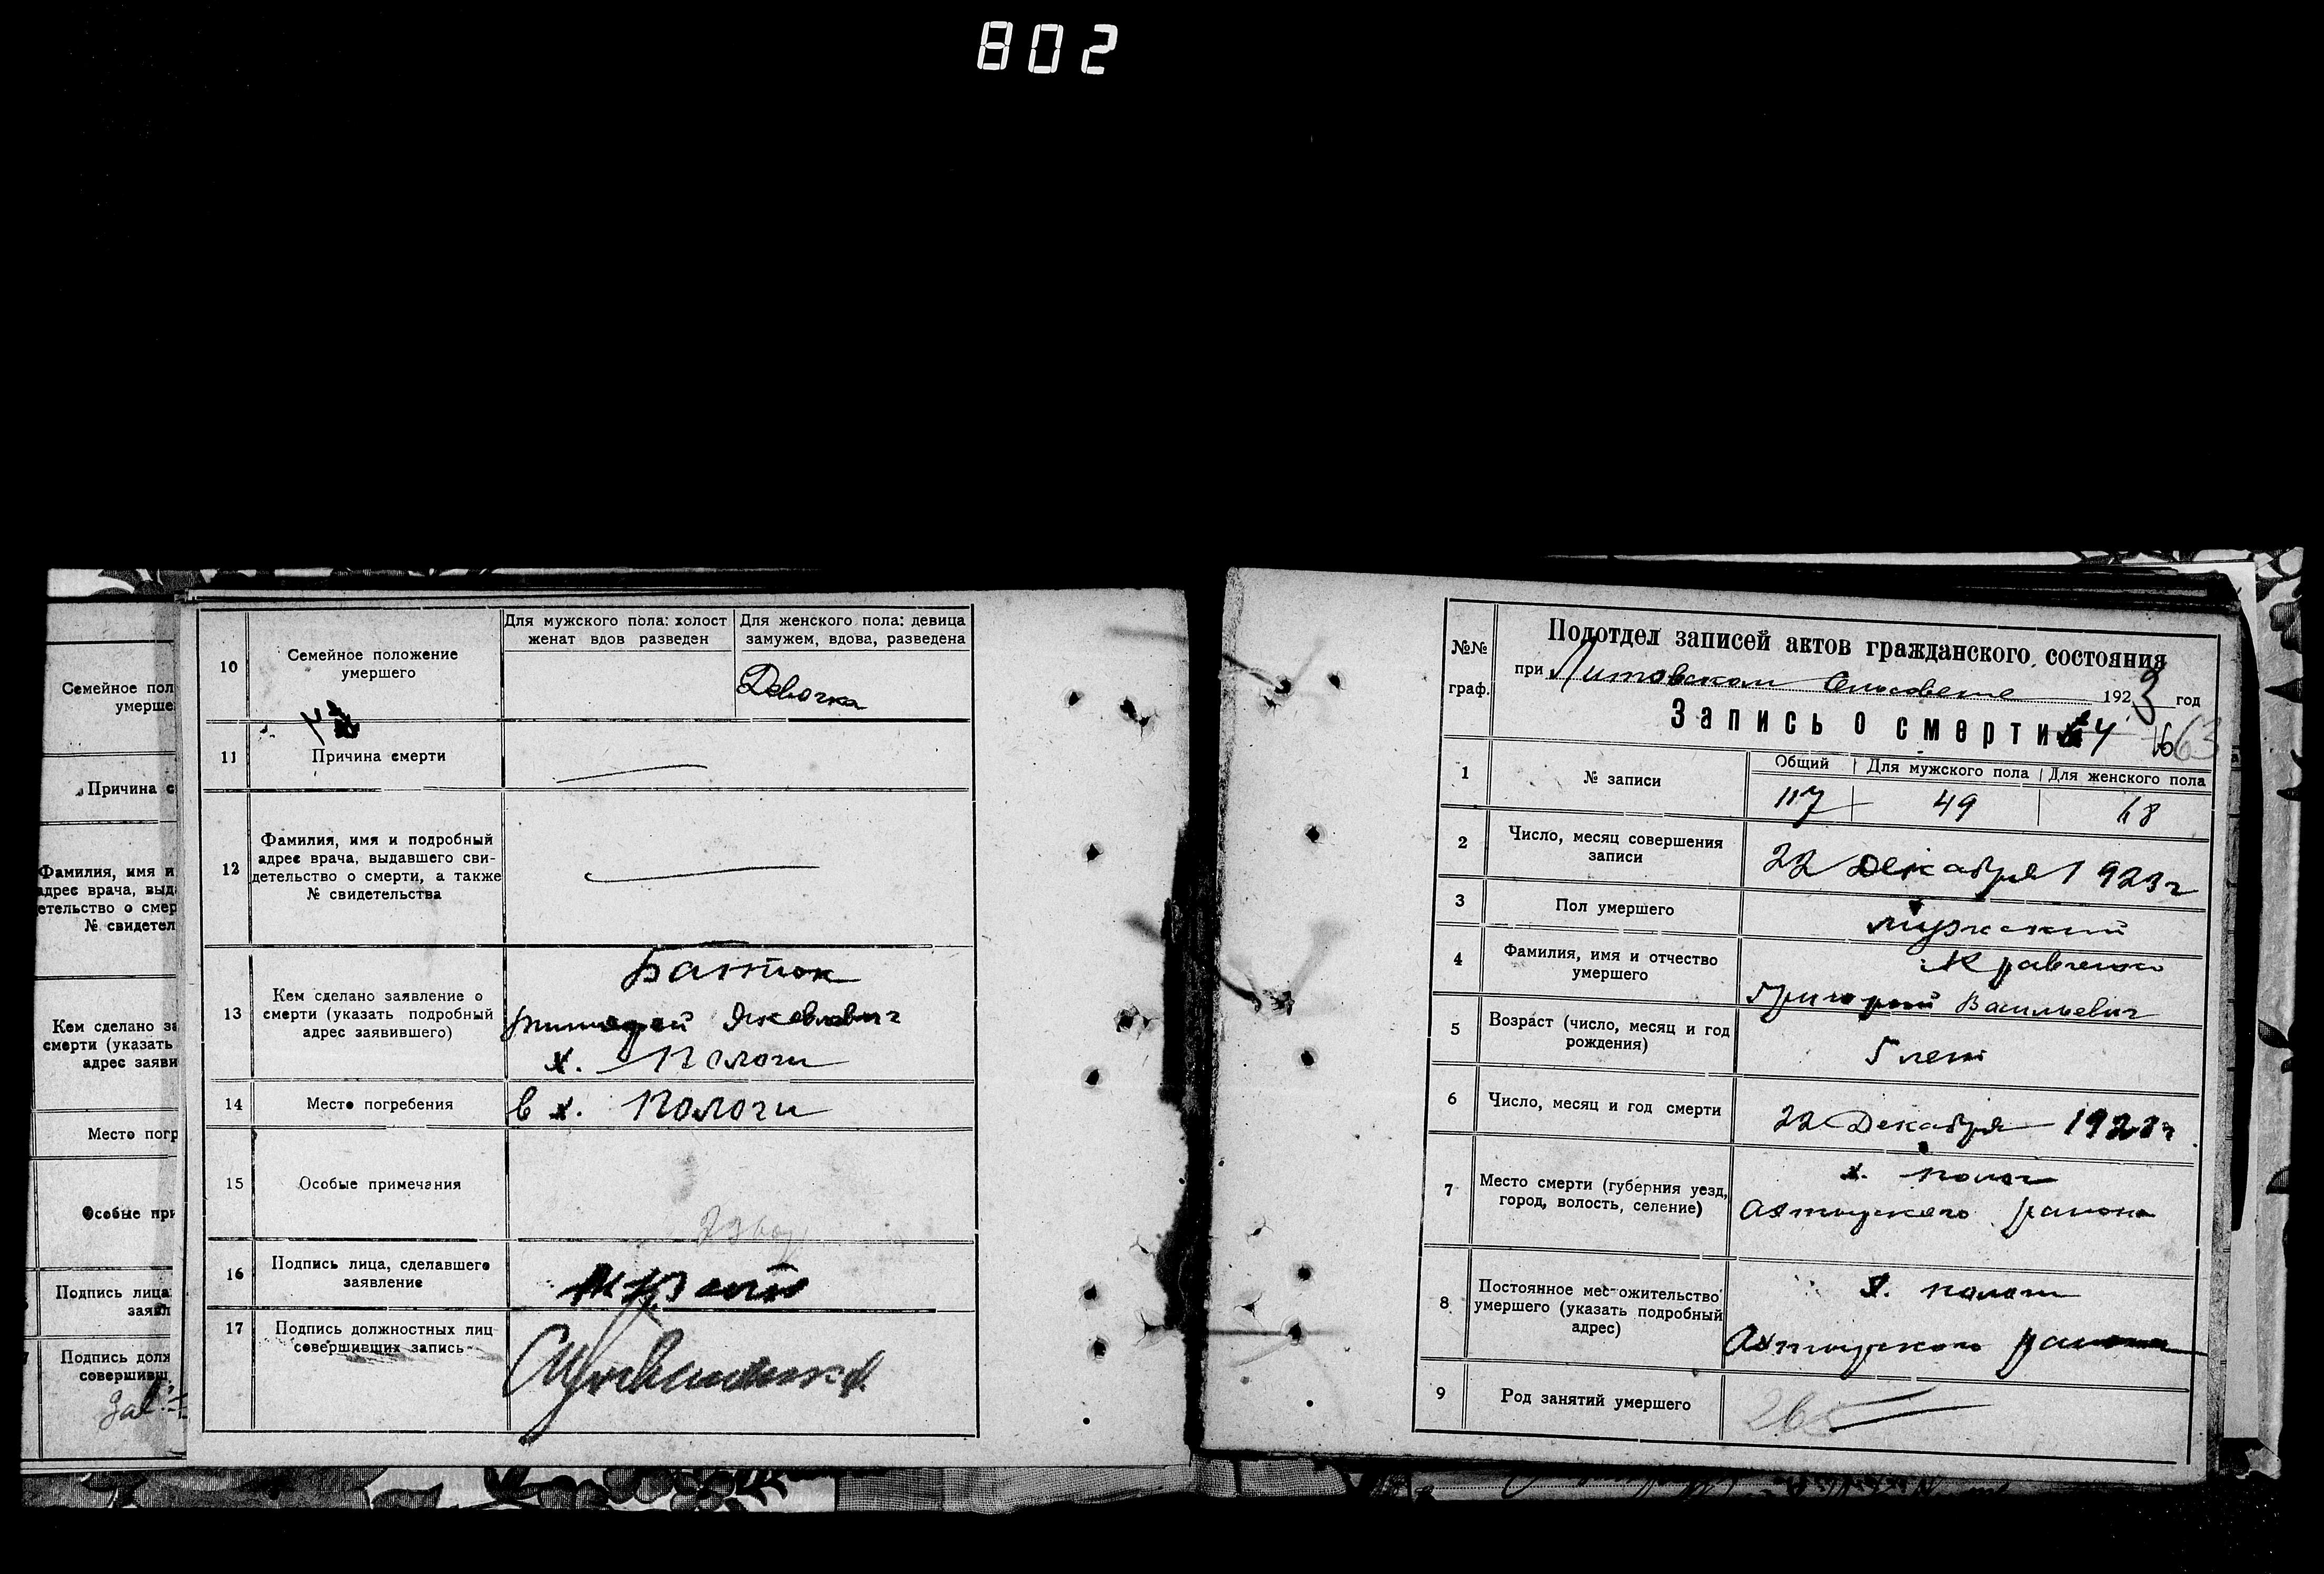 802
Семейное пол
умерше
Причина с
Фамилия, имя и
адрес врача, выд
етельство о смер
№ свидетел
Кем сделано за
смерти (указать
адрес заяви
Место погр
Особые при
Подпись лица
заявл
Подпись долж
совершивш
10
Семейное положение
умершего
Для мужского пола: холост
женат вдов разведен
Для женского пола: девица
замужем, вдова, разведена
Девочка
11
Причина смерти
12
Фамилия, имя и подробный
адрес врача, выдавшего сви-
детельство о смерти, а также
№ свидетельства
13
Кем сделано заявление о
смерти (указать подробный
адрес заявившего)
Батюк
Яковлевич
х. Пологи
14
Место погребения
в х. Пологи
15
Особые примечания
16
Подпись лица, сделавшего
заявление
17
Подпись должностных лиц
совершивших запись
№№
граф.
Подотдел записей актов гражданского состояния
при Литовском Сельсовете 1923 год
Запись о смерти
63
1
№ записи
Общий Для мужского пола Для женского пола
117 49 68
2
Число, месяц совершения
записи
22 Декабря 1923 г
3
Пол умершего
мужский
4
Фамилия, имя и отчество
умершего
Кравченко
Григорий Васильевич
5
Возраст (число, месяц и год
рождения)
5 лет
6
Число, месяц и год смерти
22 Декабря 1923 г
7
Место смерти (губерния уезд,
город, волость, селение)
х. Полог
Ахтырского района
8
Постоянное местожительство
умершего (указать подробный
адрес)
х. Пологи
Ахтырского района
9
Род занятий умершего